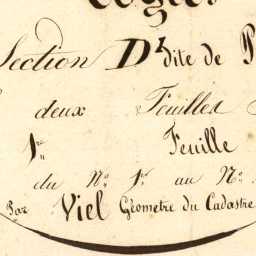 Section D dite de P
deux Feuilles
1re Feuille
du No 1er au No
Par Viel Géomètre du Cadastre